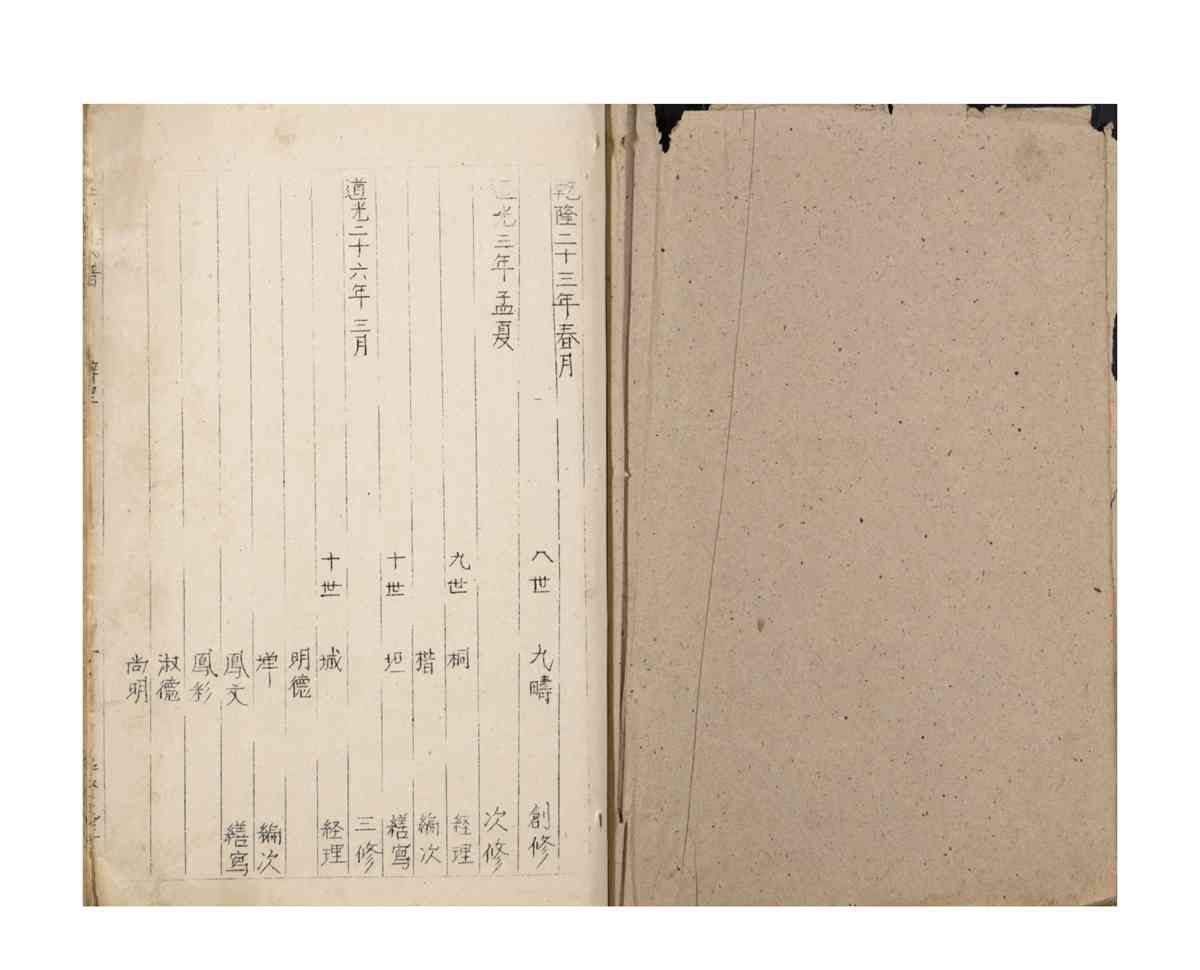 乾隆二十三年春月
八世 九疇 創修
道光三年孟夏 次修
九世 桐 経理
楷 編次
十世 坦 繕寫
道光二十六年三月 三修
十世 城 経理
明德
墠 編次
鳳文 繕寫
鳳彩
淑德
尚明